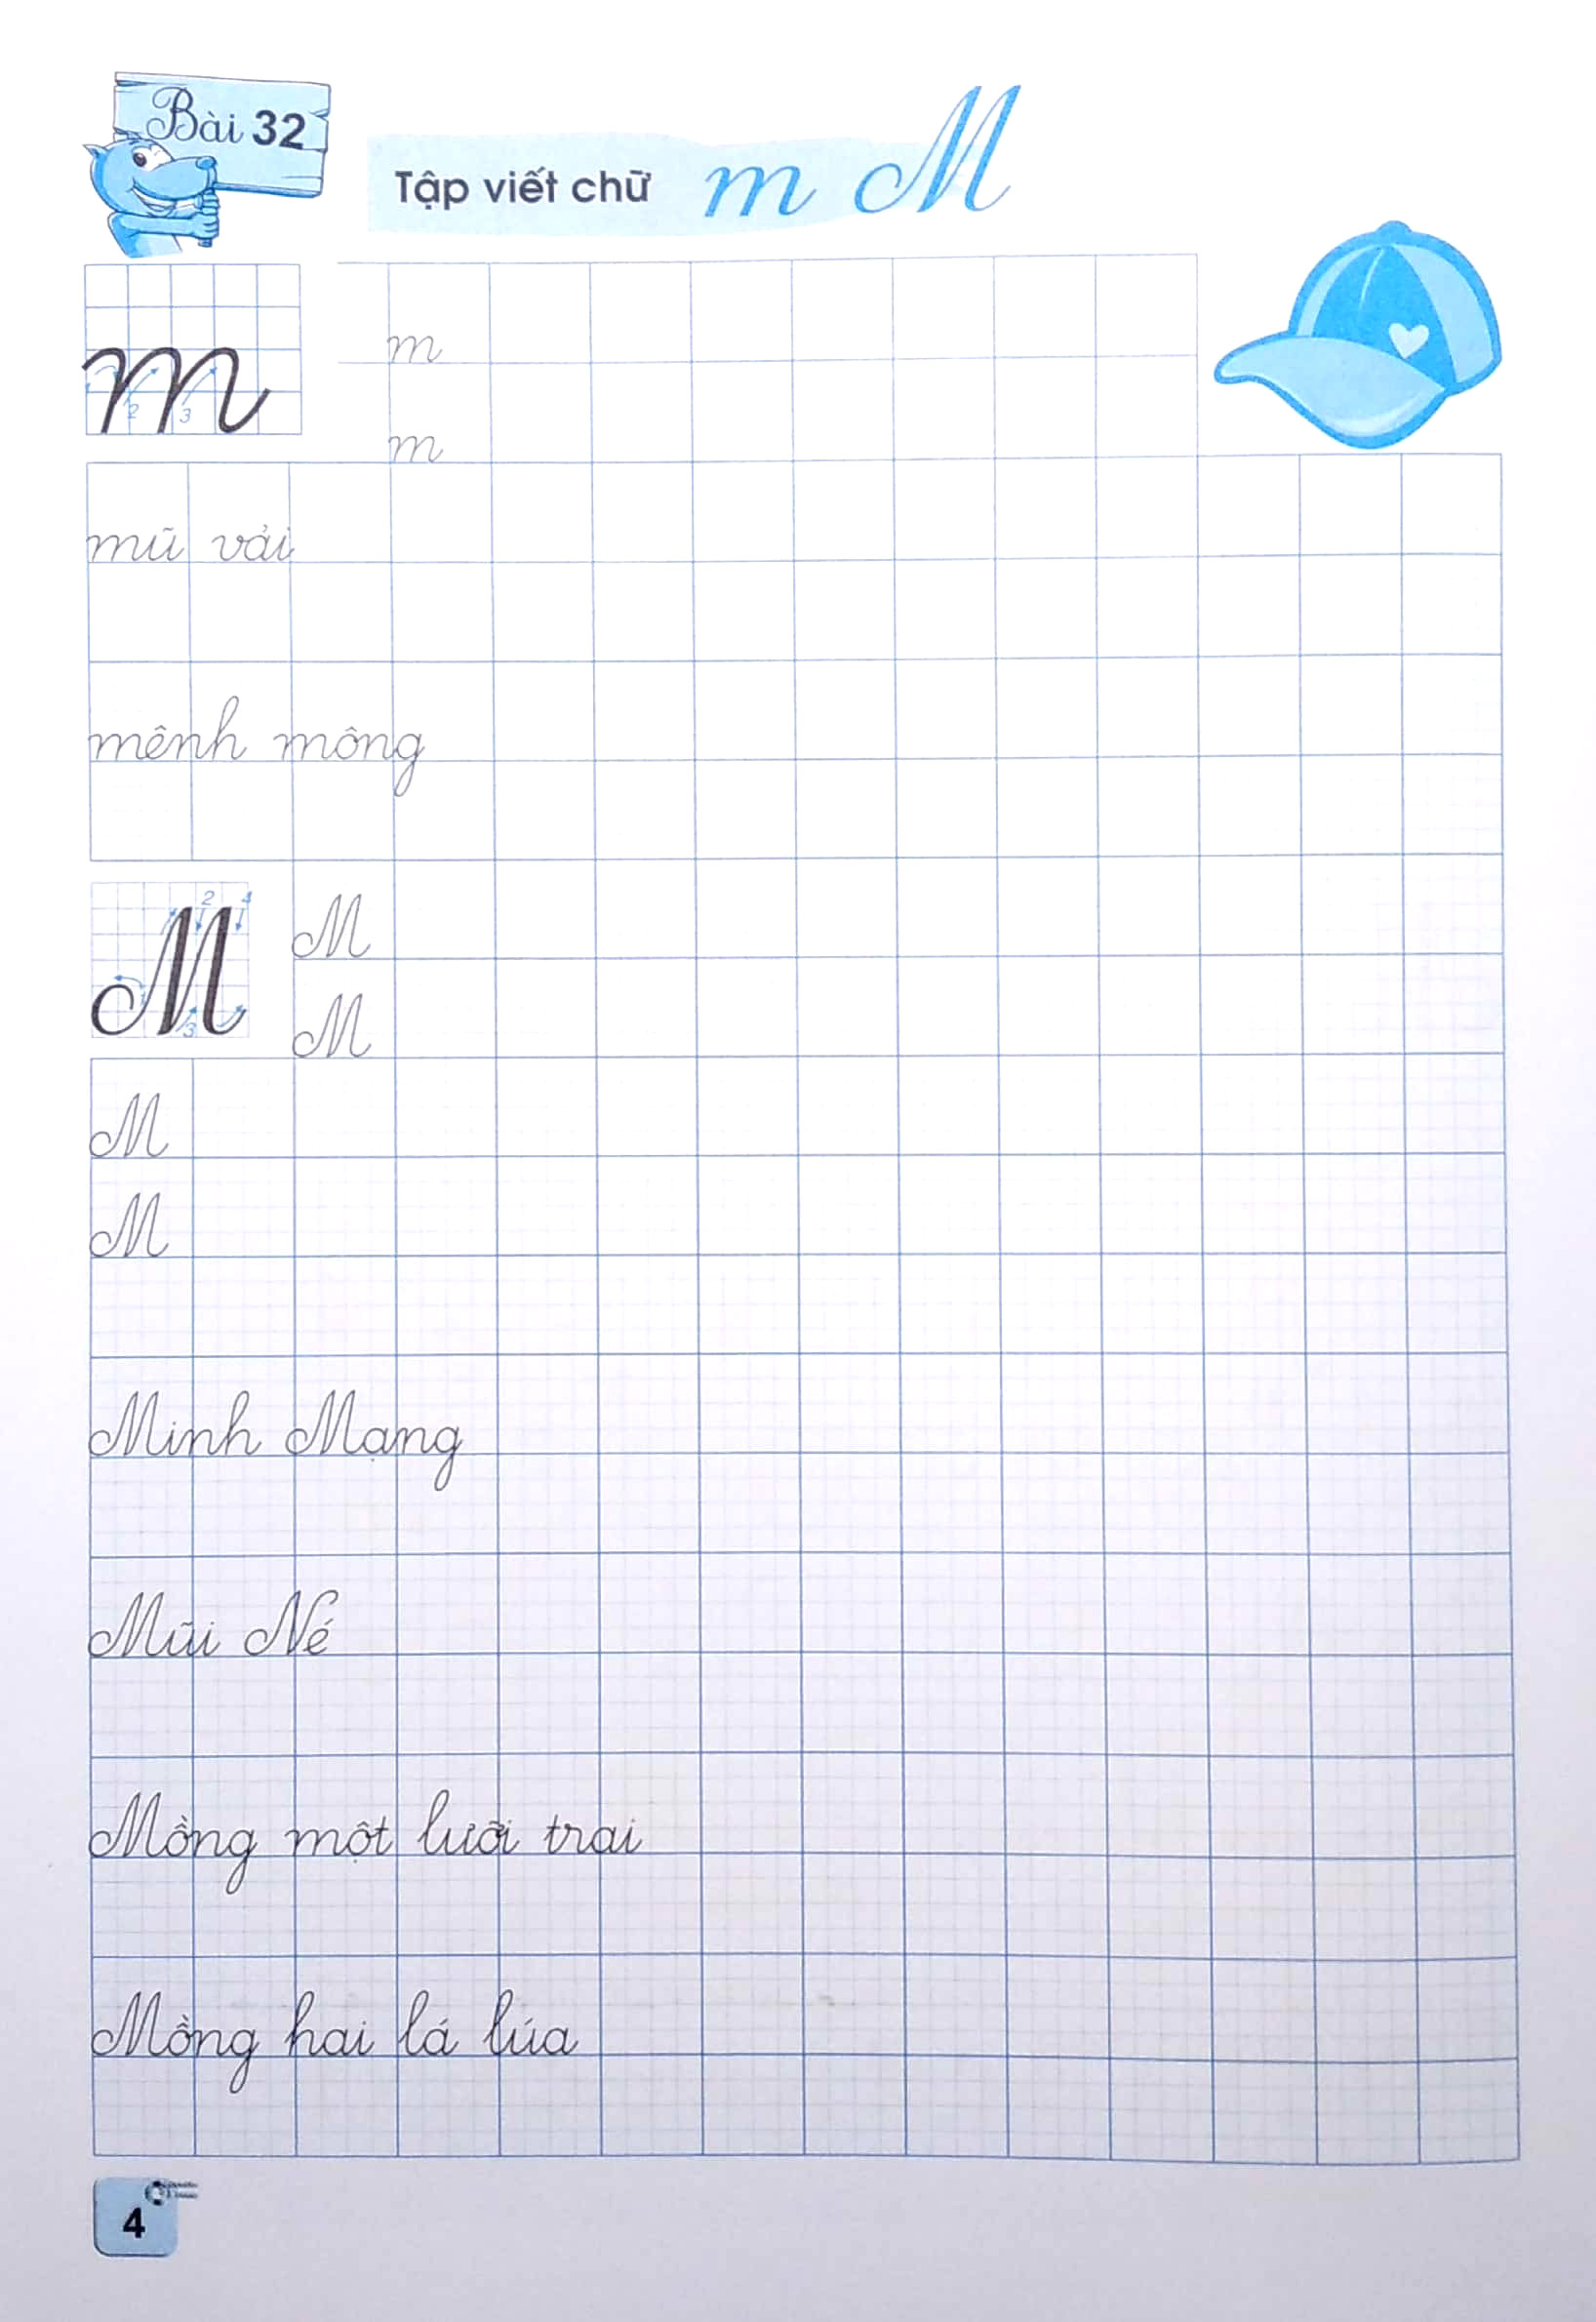 Bài 32
Tập viết chữ m M
m
2 3
m
m
mũ vải
mênh mông
M
1 2 3 4
M
M
M
M
Minh Mạng
Mũi Né
Mồng một lưỡi trai
Mồng hai lá lúa
4